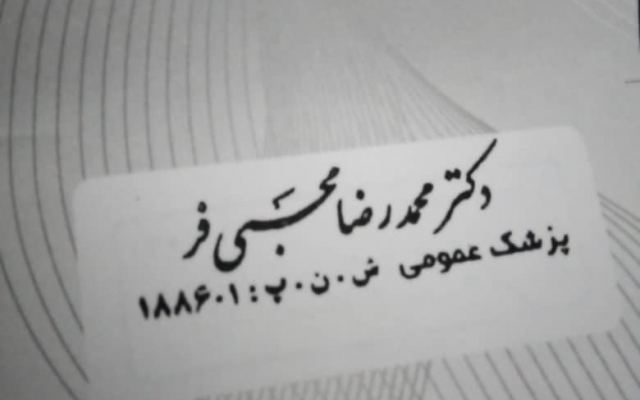 دکتر محمدرضا محبی فر
پزشک عمومی ش.ن.پ: ۱۸۸۶۰۱